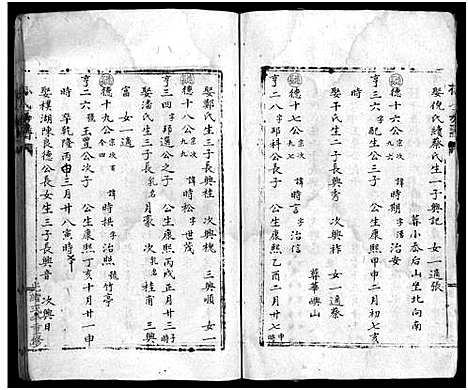 娶倪氏續蔡氏生二子長興記 女一適張
葬小泰后山坐北向南
德十六公 宗次九六 諱時期 字治安
亨二三 字配生公三子 公生康熙甲申二月初七亥
時
娶于氏生二子長興秀 次興祚 女一適蔡
葬華嶼山
德十七公 宗次 諱時言 字治信
亨二八 字邱科公長子 公生康熙乙酉二月廿七申時
娶鄭氏生三子長興桂 次興槐 三興順 女一
德十八公 宗次九九 諱時松 字世茂
亨三四 字邱通公子 公生康熙丙戌正月三
娶潘氏生三子長乳名月豪 次乳名桂甫 三興
富 女一適
德十九公 宗次百 諱時棋 字治照 號竹亭
亨二六 玉豈公次子 公生康熙丁亥十月廿一申
時 卒乾隆丙申三月廿八寅時
娶樸湖陳良德公長女生三子長興音 次興日